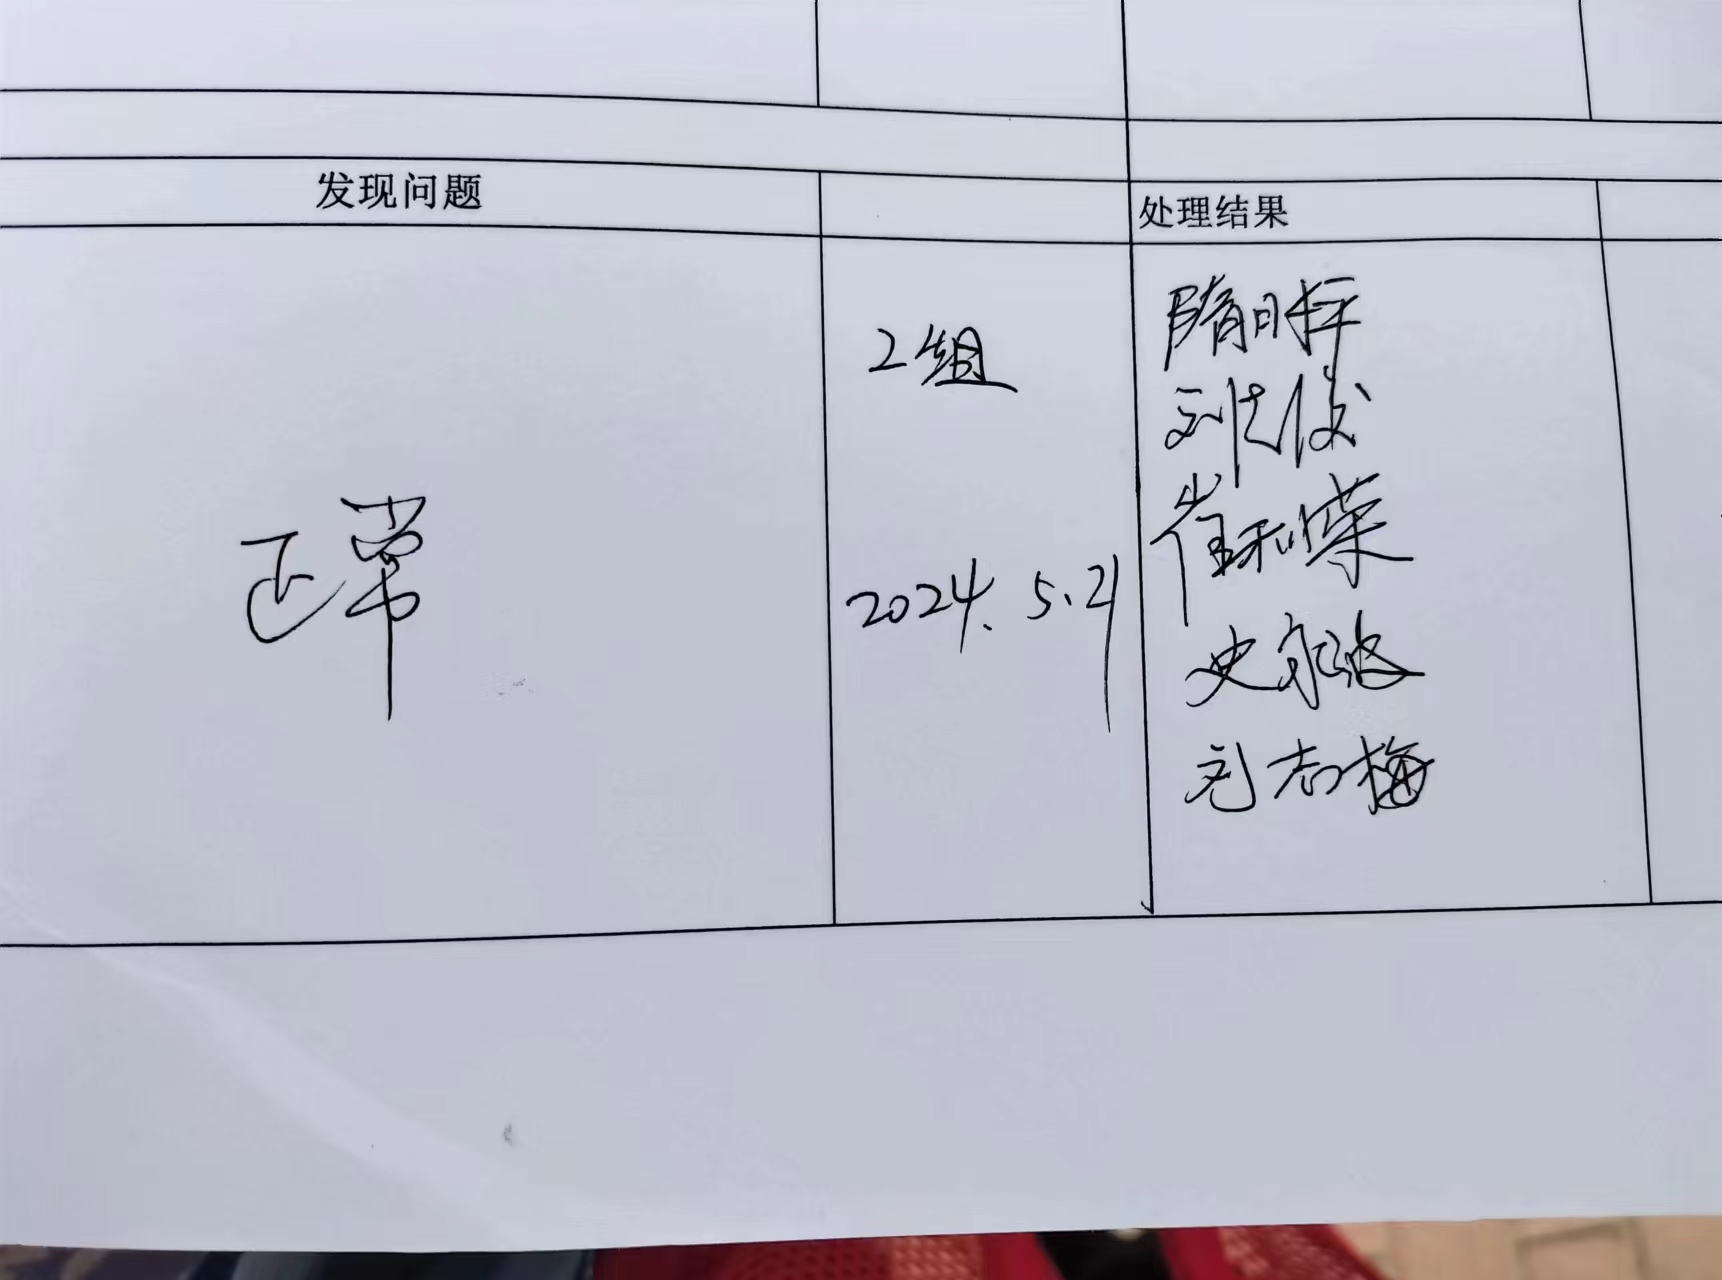 发现问题
处理结果
正常
2组
2024.5.21
隋日
刘俊
崔和荣
史永
刘志梅